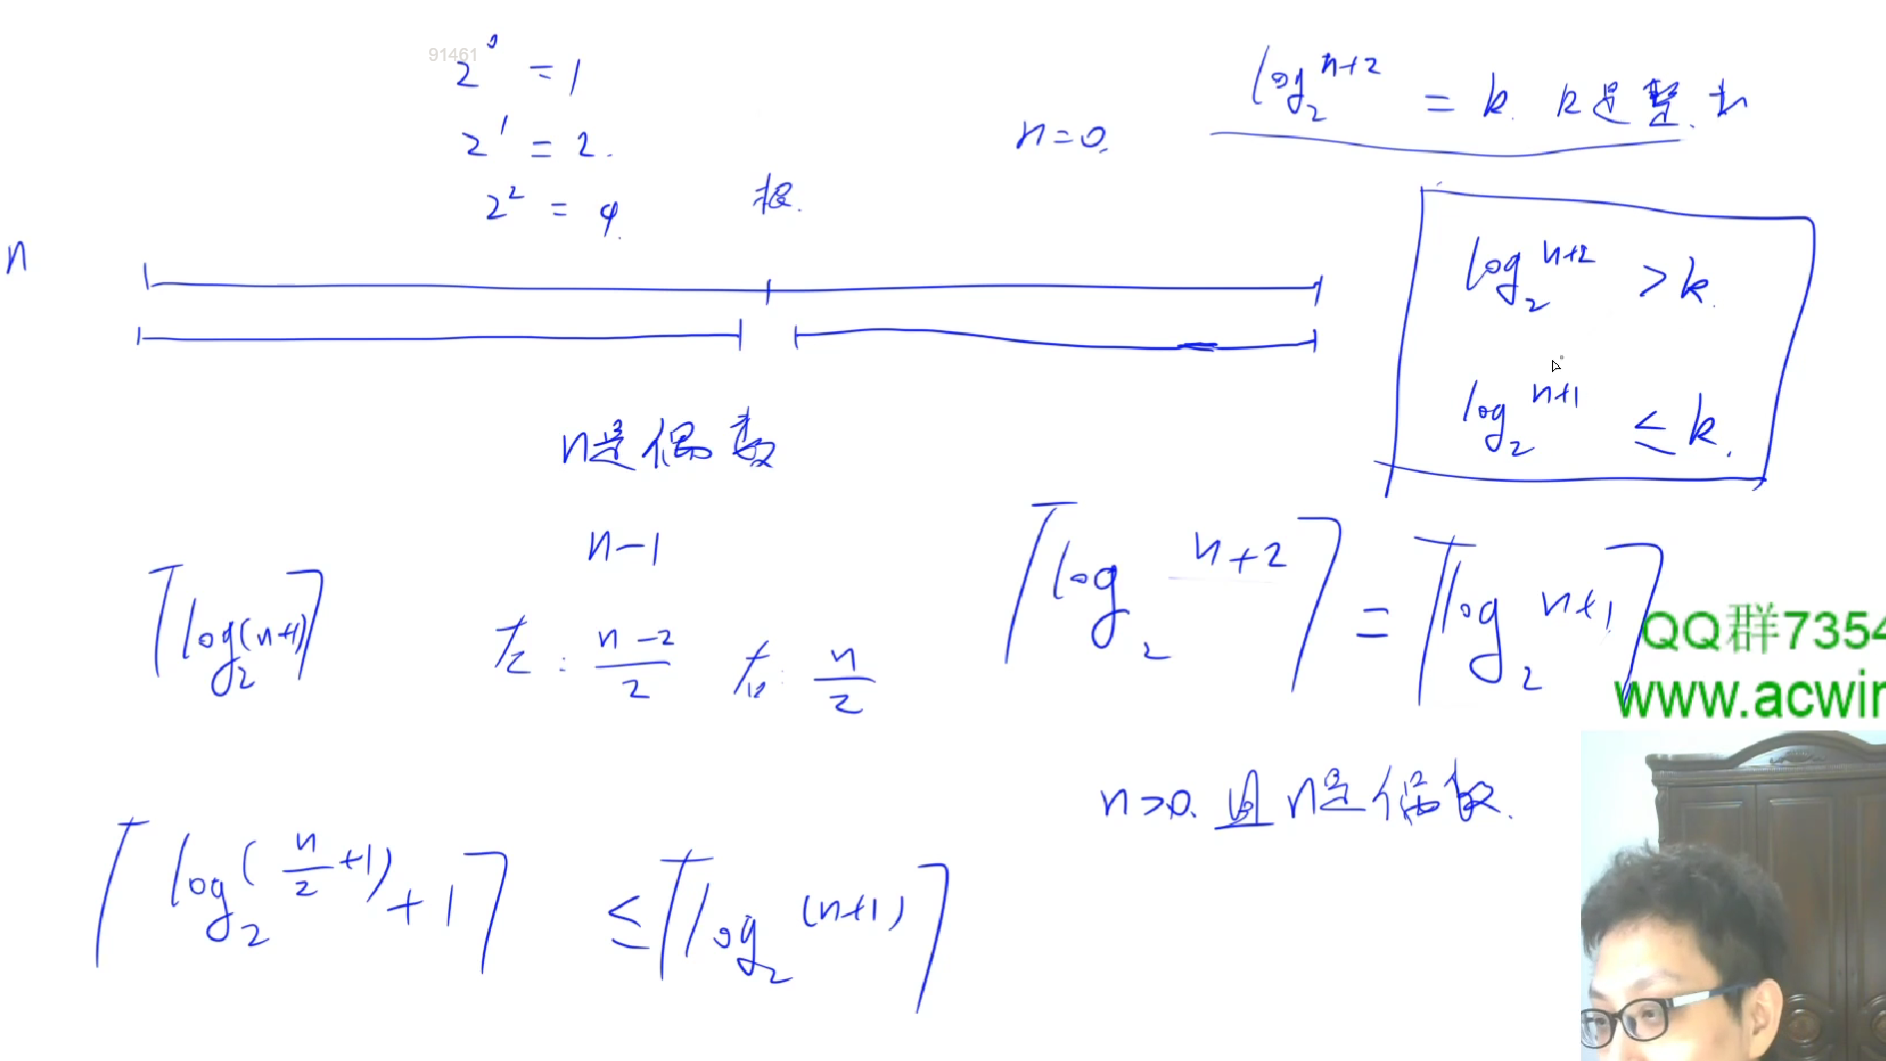 91461
2^0 = 1
2^1 = 2.
2^2 = 4.
n=0.
log_2^{n+2} = k. k是整
根.
n
log_2^{n+2} > k.
log_2^{n+1} ≤ k.
n是偶数
n-1
⌈log_2(n+1)⌉
左: \frac{n-2}{2} 右: \frac{n}{2}
⌈log_2^{n+2}⌉ = ⌈log_2^{n+1}⌉
QQ群7354
www.acwin
n>0. 且 n是偶数.
⌈log_2(\frac{n}{2}+1)+1⌉ ≤ ⌈log_2(n+1)⌉